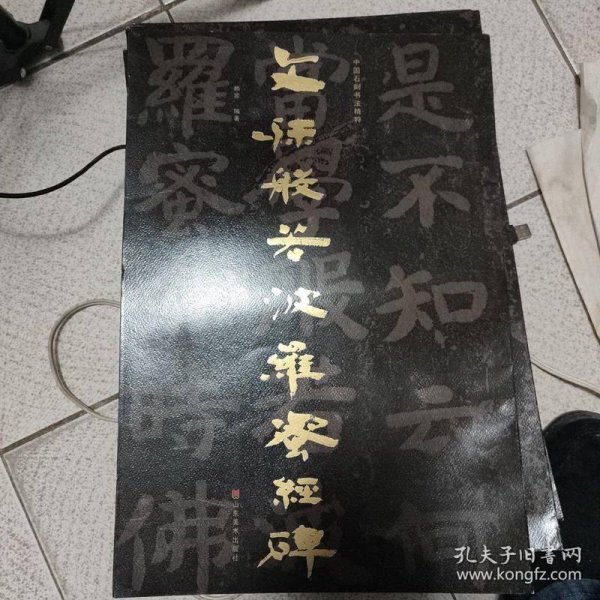 中国石刻书法精粹
文殊般若波羅蜜經碑
编著
山东美术出版社
是不知云何
羅蜜
時佛
孔夫子旧书网
www.kongfz.com